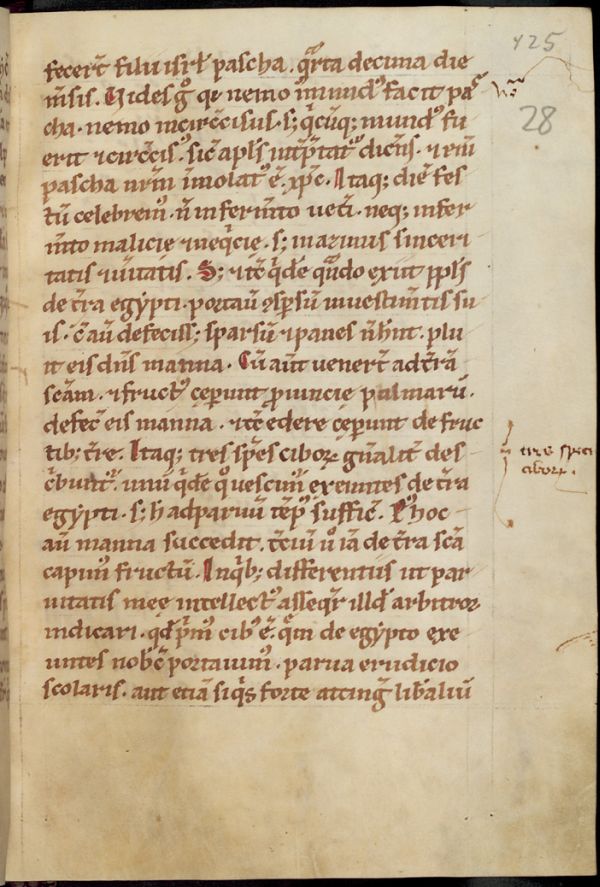 125
28
fecert̄ filii isrl̄ pascha. q̄rta decima die
m̄sis. Vides g̊ qr nemo īmundꝰ facit pas
cha. nemo incircūcisus. s; q̄cūq; mundꝰ fu
erit ⁊ circūcis. sic̄ apl̄s int̄p̄tatꝰ dicēs. ⁊ eni
pascha nr̄m īmolatꝰ ē. xp̄c. Itaq; diē fes
tū celebremꝰ. n̄ in fermīto vet̄i. neq; in fer
mīto malicie ⁊ neq̄cie. s; in azimis sinceri
tatis ⁊ ūitatis. S; ⁊ īt̄c q̄de q̄ndo exiīt ppl̄s
de t̄ra egẏpti. portaū ꝯsp̄sū in uestim̄tis su
is. c̄ aū defeciss; sparsū ⁊ panes n̄ hn̄t. plu
it eis dn̄s manna. Cū aūt venert̄ ad t̄rā
scām. ⁊ fructꝰ ceperunt prouincie palmarū.
defec̄ eis manna. ⁊ tc̄ edere ceperunt de fruc
tib; t̄re. Itaq; tres sp̄es ciboꝝ gn̄alit̄ des
c̄buntꝰ. unū q̄de q̊ uescimꝰ exeuntes de t̄ra
egẏpti. s; h̄ ad paruū tēpꝰ suffic̄. Pꝰ hoc
aū manna succedit. t̄ciū ů iā de t̄ra scā
capimꝰ fructū. In q̄b; differentiis ut par
uitatis mee intellectꝰ asseqr̄ illd̄ arbitror
indicari. qd̄ p̄mꝰ cibꝰ ē. q̄m de egẏpto exe
untes nobc̄ portauimꝰ. parua erudicio
scolaris. aut etiā siq̄s forte attinḡ liƀaliū
tres speci
ciboꝝ.